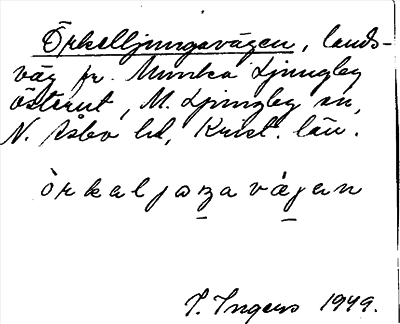 Örkelljungavägen, lands-
väg fr. Munka Ljungby
österut, M. Ljungby sn,
N. Åsbo hd, Krist. län.
örkaljɷŋavägen
I. Ingers 1949.